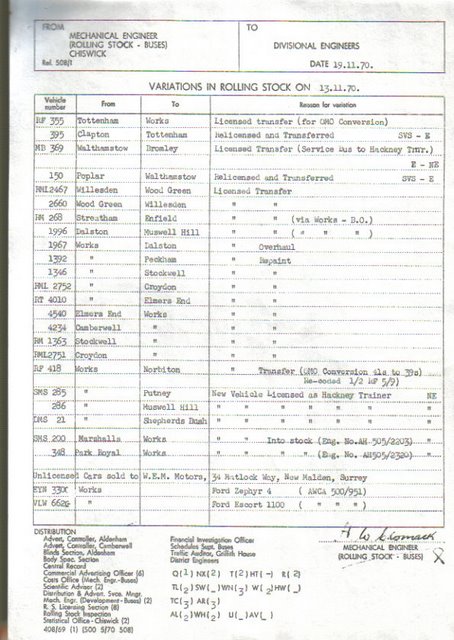 FROM
MECHANICAL ENGINEER
(ROLLING STOCK - BUSES)
CHISWICK
Ref. 508/1
TO
DIVISIONAL ENGINEERS
DATE 19.11.70.
VARIATIONS IN ROLLING STOCK ON 13.11.70.
Vehicle number From To Reason for variation
RF 355 Tottenham Works Licensed transfer (for OMO Conversion)
395 Clapton Tottenham Relicensed and Transferred SVS - E
MB 369 Walthamstow Bromley Licensed Transfer (Service Bus to Hackney Tnr.)
E - NE
150 Poplar Walthamstow Relicensed and Transferred SVS - E
RML2467 Willesden Wood Green Licensed Transfer
2660 Wood Green Willesden " "
RM 268 Streatham Enfield " " (via Works - B.O.)
1996 Dalston Muswell Hill " " ( " " " )
1967 Works Dalston " Overhaul
1392 " Peckham " Repaint
1346 " Stockwell " "
RML 2752 " Croydon " "
RT 4010 " Elmers End " "
4540 Elmers End Works " "
4234 Camberwell " " "
RM 1363 Stockwell " " "
RML2751 Croydon " " "
RF 418 Works Norbiton " Transfer (OMO Conversion 41s to 39s)
Re-coded 1/2 RF 5/9)
SMS 285 " Putney New Vehicle Licensed as Hackney Trainer NE
286 " Muswell Hill " " " " " "
DMS 21 " Shepherds Bush " " " " " "
SMS 200 Marshalls Works " " Into stock (Eng. No.AH 505/2203) "
348 Park Royal Works " " " " (Eng. No. AH505/2320) "
Unlicensed Cars sold to W.E.M. Motors, 34 Matlock Way, New Malden, Surrey
Works Ford Zephyr 4 ( AWCA 500/951)
VLW 662G " Ford Escort 1100 ( " " " )
DISTRIBUTION
Advert. Controller, Aldenham
Advert. Controller, Camberwell
Blinds Section, Aldenham
Body Spec. Section
Central Record
Commercial Advertising Officer (6)
Costs Office (Mech. Engr.-Buses)
Scientific Advisor (2)
Distribution & Advert. Svce. Mngr.
Mech. Engr. (Development - Buses) (2)
R. S. Licensing Section (8)
Rolling Stock Inspection
Statistical Office - Chiswick (2)
408/69 (1) (500 5/70 508)
Financial Investigation Officer
Schedules Supt. Buses
Traffic Auditor, Griffith House
District Engineers
Q(1) NX(2) T(2) HT(-) R(2)
TL(2) SW(_) WN(3) W(2) HW(_)
TC(3) AR(3)
AL(2) WH(2) U(_) AV(_)
MECHANICAL ENGINEER
(ROLLING STOCK - BUSES)